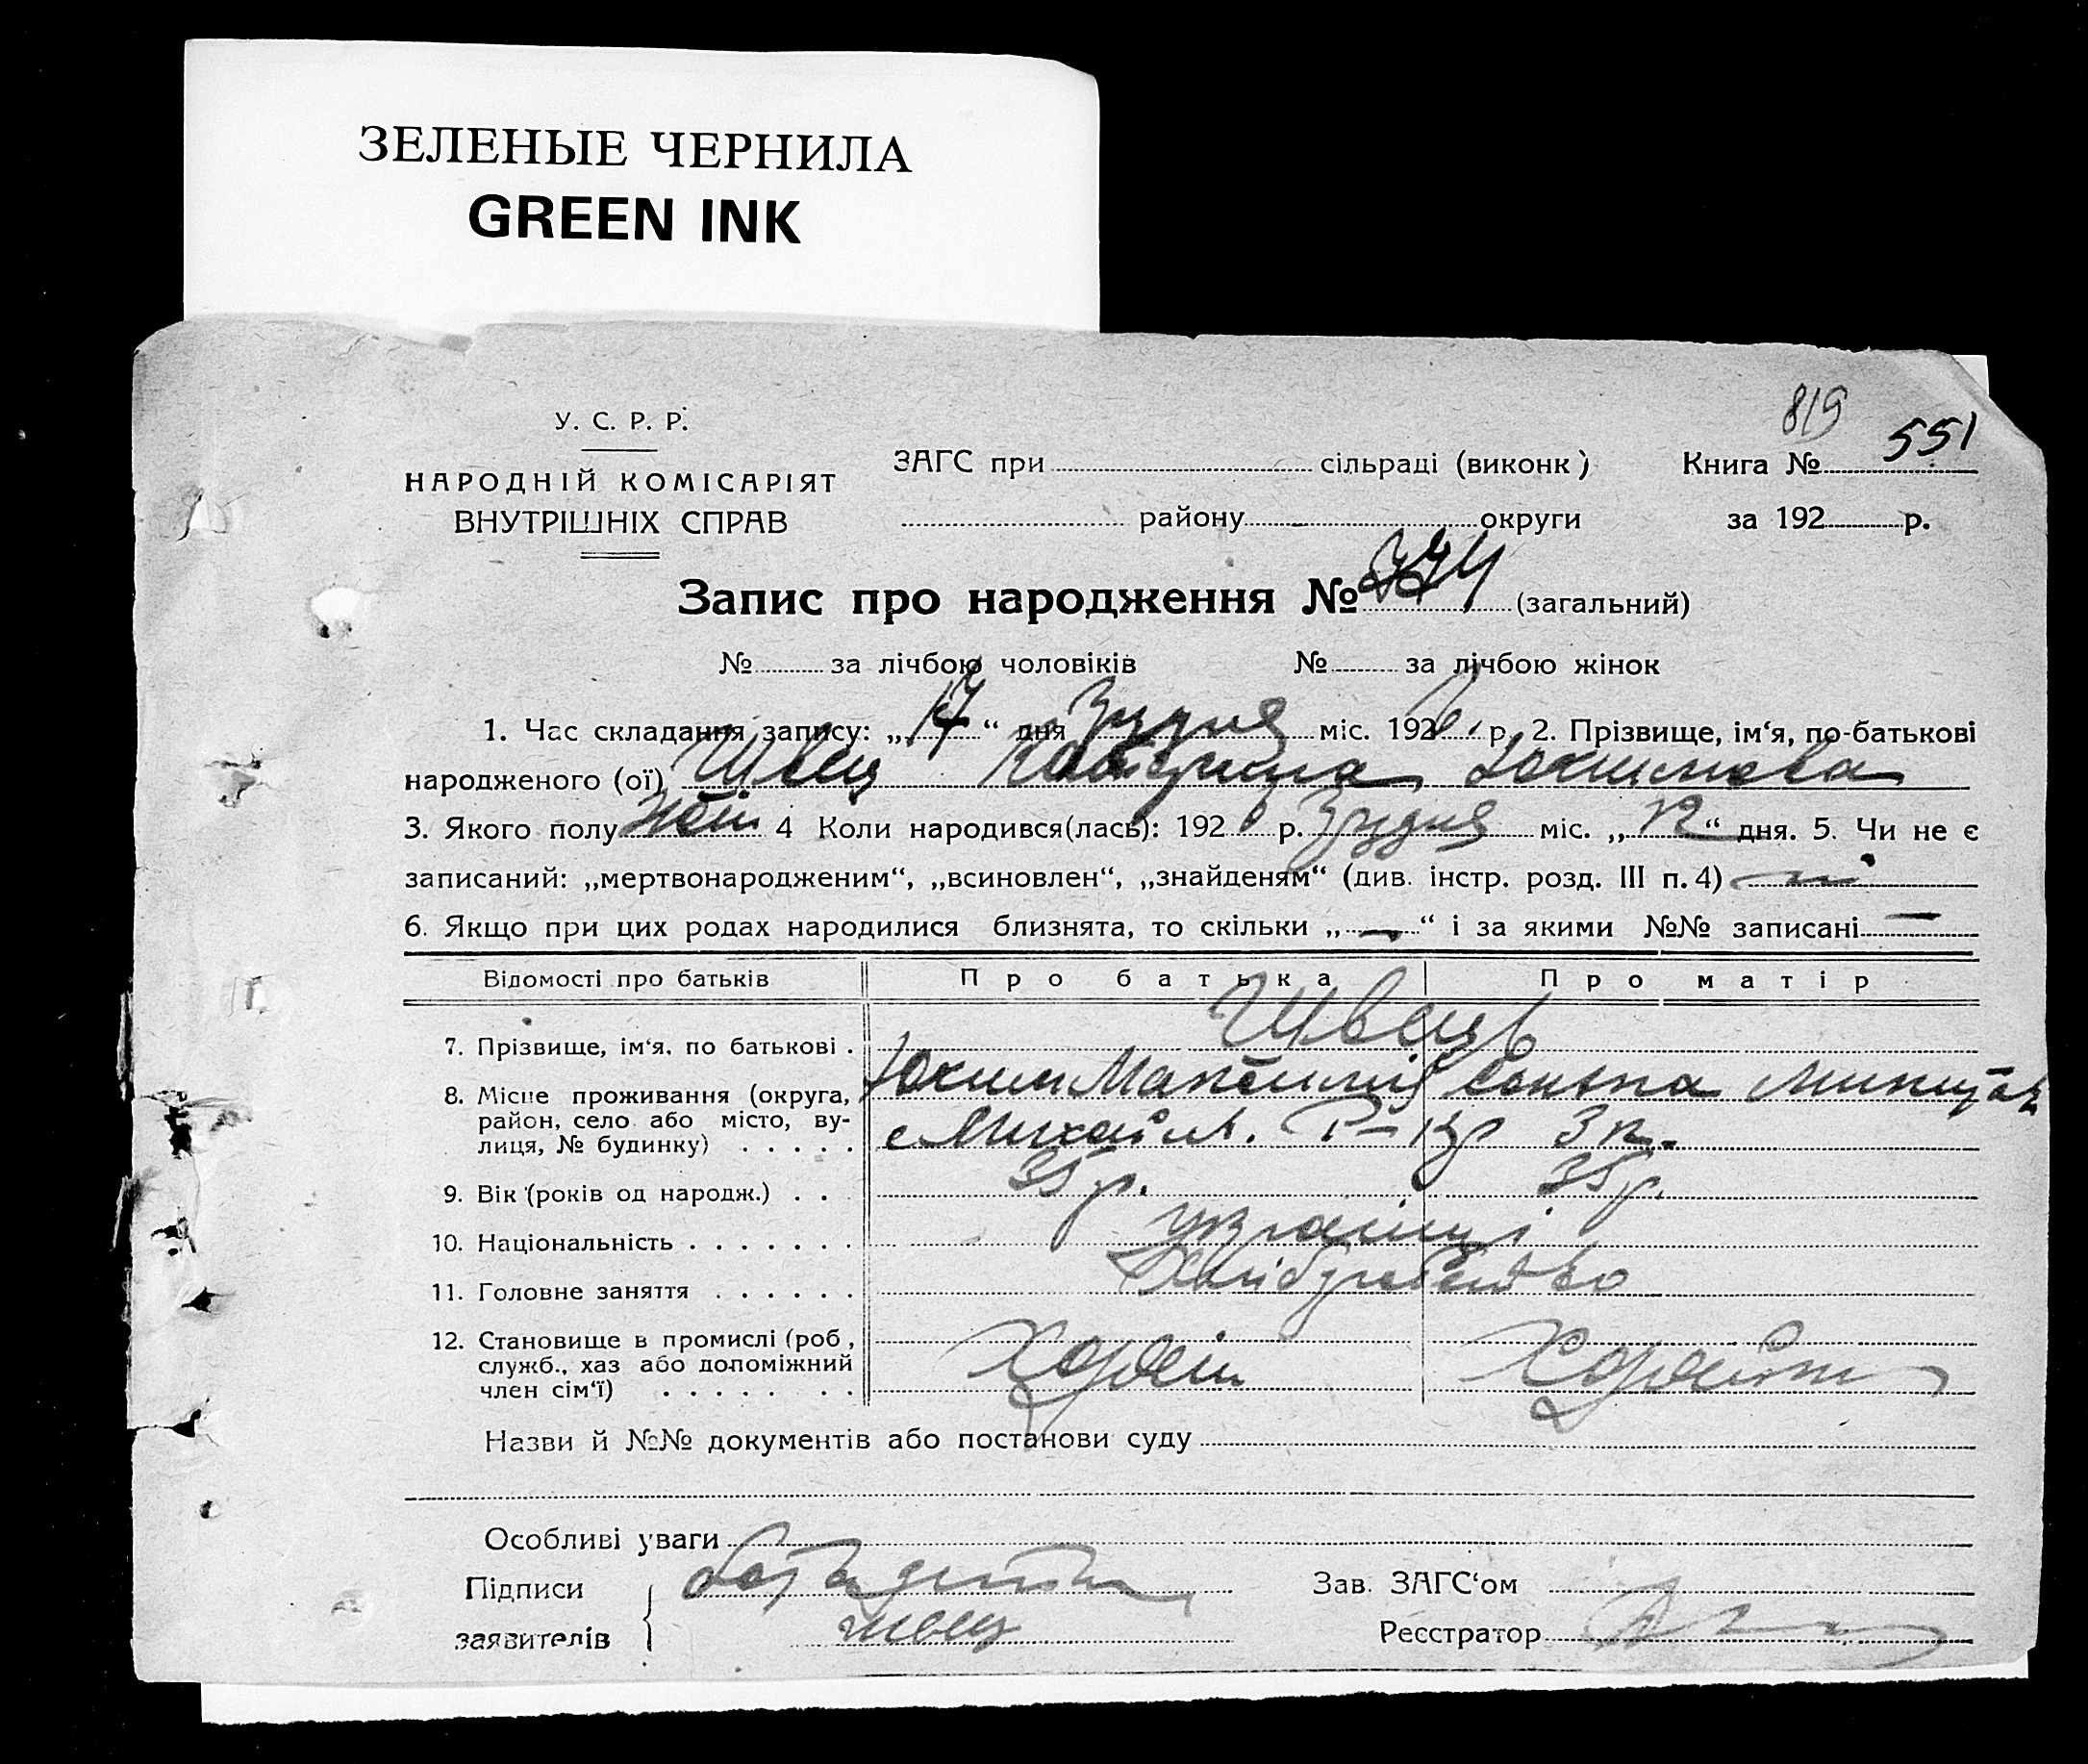 ЗЕЛЕНЫЕ ЧЕРНИЛА
GREEN INK
819
У. С. Р. Р.
НАРОДНІЙ КОМІСАРІЯТ
ВНУТРІШНІХ СПРАВ
ЗАГС при сільраді (виконк) Книга № 551
району округи за 192 р.
Запис про народження № (загальний)
№ за лічбою чоловіків № за лічбою жінок
1. Час складання запису: „17“ дня Грудня міс. 192 р. 2. Прізвище, ім‘я, по-батькові
народженого (ої) Швец Катерина Юхимовна
3. Якого полу жін 4 Коли народився(лась): 192 р. Грудня міс. „12“ дня. 5. Чи не є
записаний: „мертвонародженим“, „всиновлен“, „знайденям“ (див. інстр. розд. III п. 4) ні
6. Якщо при цих родах народилися близнята, то скільки „—“ і за якими №№ записані —
Відомості про батьків Про батька Про матір
7. Прізвище, ім‘я, по батькові . Швець
Юхим
8. Місце проживання (округа,
район, село або місто, ву-
лиця, № будинку) . . . . . с Михайл.
9. Вік (років од народж.) . . 35 р. 35 р.
10. Національність . . . . . . . українці
11. Головне заняття . . . . . . Хліборобство
12. Становище в промислі (роб,
служб., хаз або допоміжний
член сім‘ї) . . . . . . .
Назви й №№ документів або постанови суду
Особливі уваги
Підписи
заявителів Швец
Зав. ЗАГС‘ом
Реєстратор